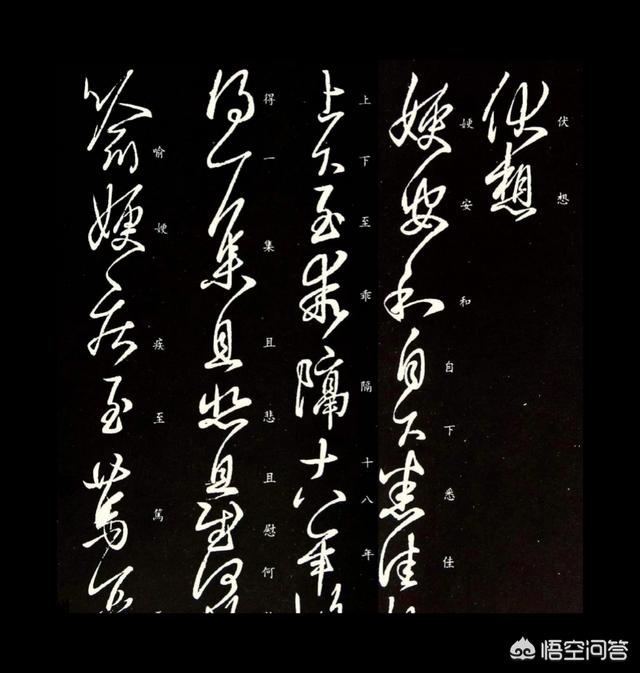 伏想
嫂安和自下悉佳
上下至乖隔十八年
得一集且悲且慰何
喻嫂疾至篤
伏想
嫂安和自下悉佳
上下至乖隔十八年
得一集且悲且慰何
喻嫂疾至篤
悟空问答